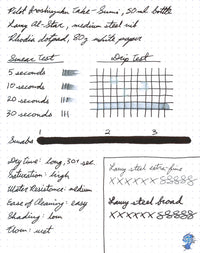 Pilot Iroshizuku Take-Sumi, 50ml bottle
Lamy Al-Star, medium steel nib
Rhodia dotpad, 80g white paper
Smear Test
Drip Test
5 seconds
10 seconds
20 seconds
30 seconds
Swabs 1 2 3
Dry Time: long, 30+ sec.
Saturation: high
Water Resistance: medium
Ease of Cleaning: easy
Shading: low
Flow: wet
Lamy steel extra-fine
xxxxxx 888888
Lamy steel broad
xxxxxx 88888